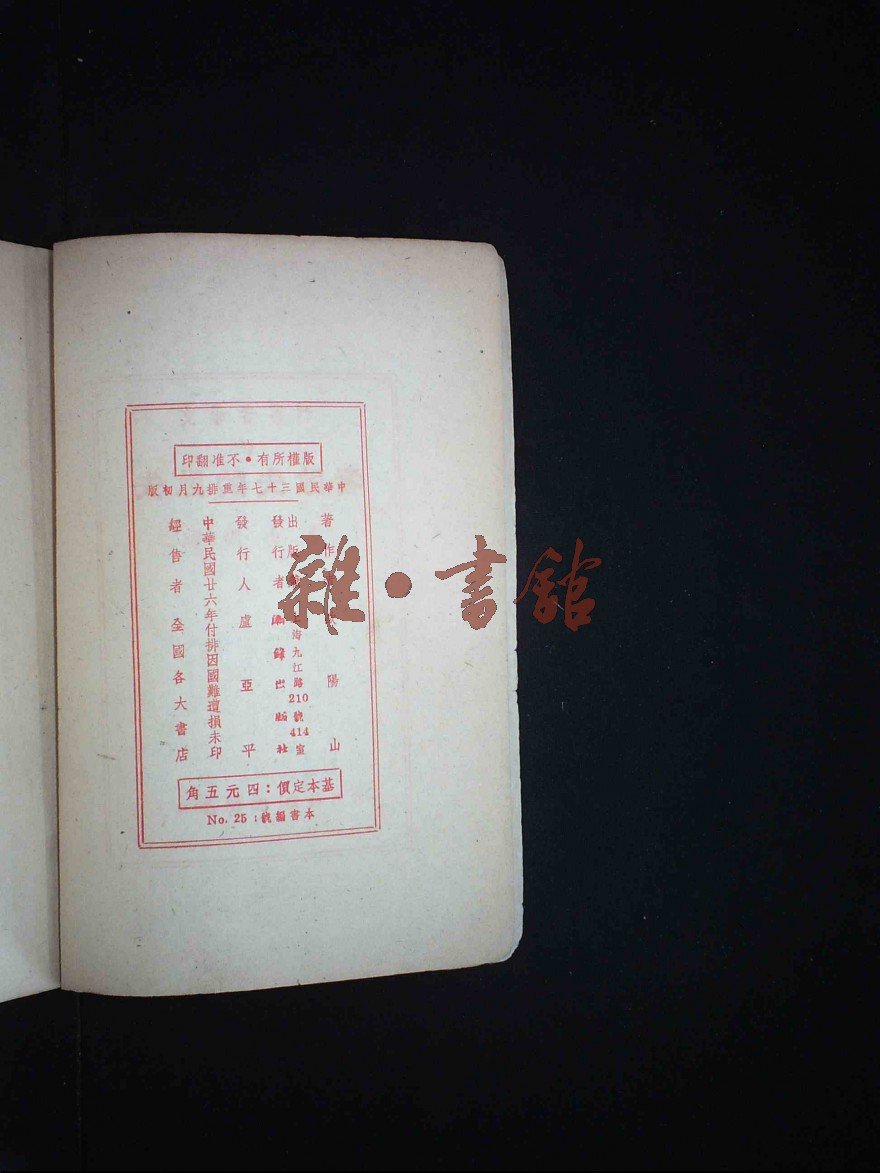 版權所有・不准翻印
中華民國三十七年重排九月初版
著作陽山
出版
海九江路210號414室
發行者
潮鋒出版社
發行人盧亞平
中華民國廿六年付排因國難遭損未印
經售者全國各大書店
基本定價：四元五角
本書編號：No. 25
雜・書館